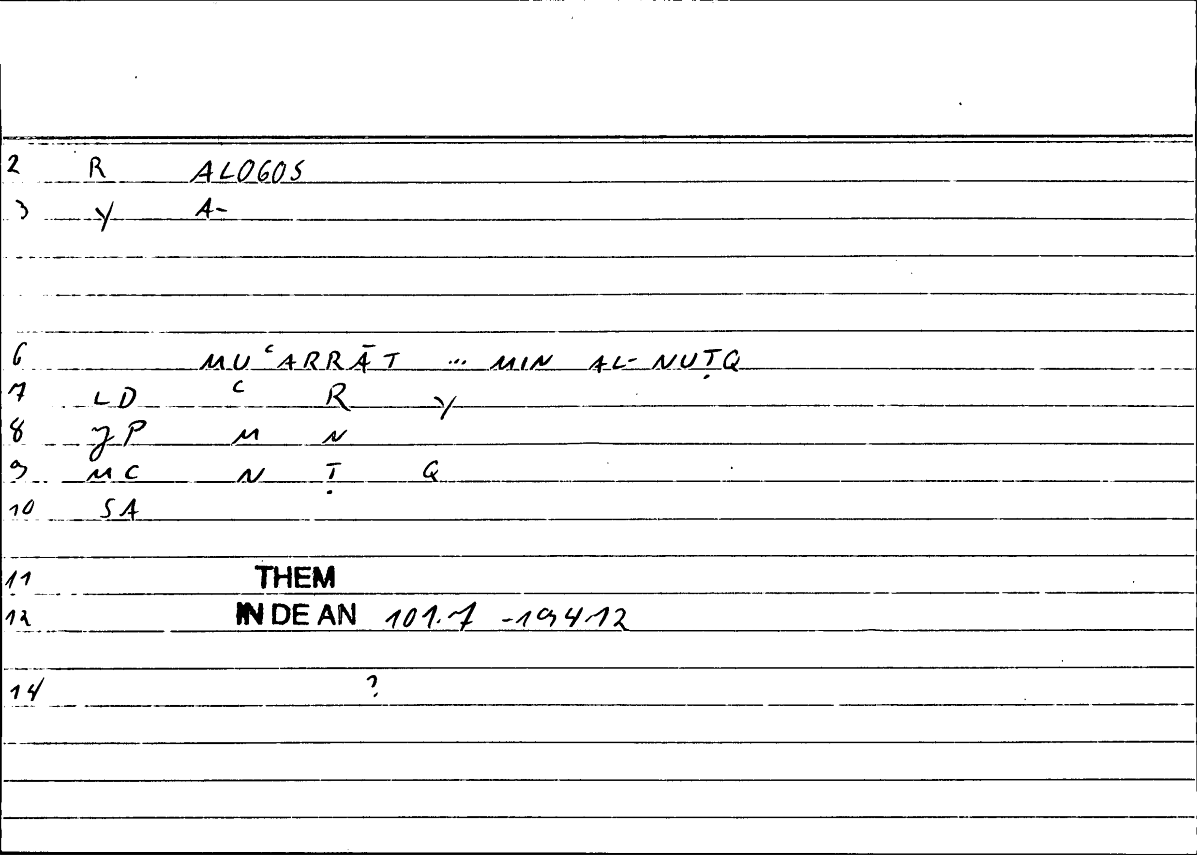 2 R ALOGOS
3 Y A-
6 MUᶜARRĀT ... MIN AL-NUṬQ
7 LD ᶜ R Y
8 JP M N
9 MC N Ṭ Q
10 SA
11 THEM
12 IN DE AN 101.7 -19412
14 ?